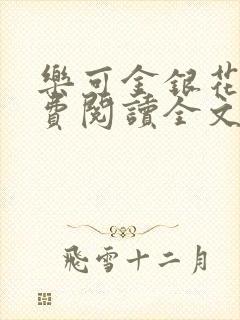 樂可金銀花
費閱讀全文
飛雪十二月